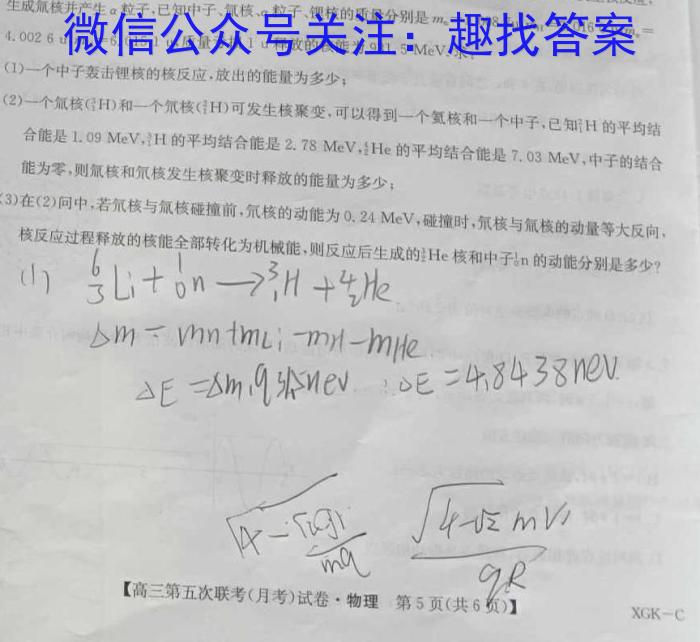 生成氚核并产生α粒子,已知中子、氚核、α粒子、锂核的质量分别是
微信公众号关注：趣找答案
(1)一个中子轰击锂核的核反应,放出的能量为多少;
(2)一个氚核(³₁H)和一个氘核(²₁H)可发生核聚变,可以得到一个氦核和一个中子,已知²₁H的平均结
合能是1.09 MeV,³₁H的平均结合能是2.78 MeV,⁴₂He的平均结合能是7.03 MeV,中子的结合
能为零,则氚核和氘核发生核聚变时释放的能量为多少;
(3)在(2)问中,若氘核与氚核碰撞前,氘核的动能为0.24 MeV,碰撞时,氘核与氚核的动量等大反向,
核反应过程释放的核能全部转化为机械能,则反应后生成的⁴₂He核和中子¹₀n的动能分别是多少?
(1) ⁶₃Li+¹₀n→³₁H+⁴₂He
Δm=mn+mLi-mH-mHe
ΔE=Δm·931.5mev ∴ΔE=4.8438mev.
√4-√2 mv
qR
【高三第五次联考(月考)试卷·物理 第5页(共6页)】
XGK-C